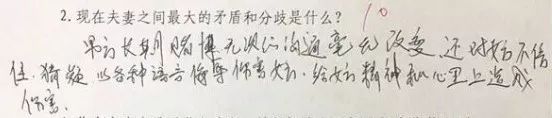 2. 现在夫妻之间最大的矛盾和分歧是什么? 10
男方长期赌博无法沟通毫无改变,还对女方不信
任.猜疑 以各种语言侮辱伤害女方.给女方精神和心里上造成
伤害.